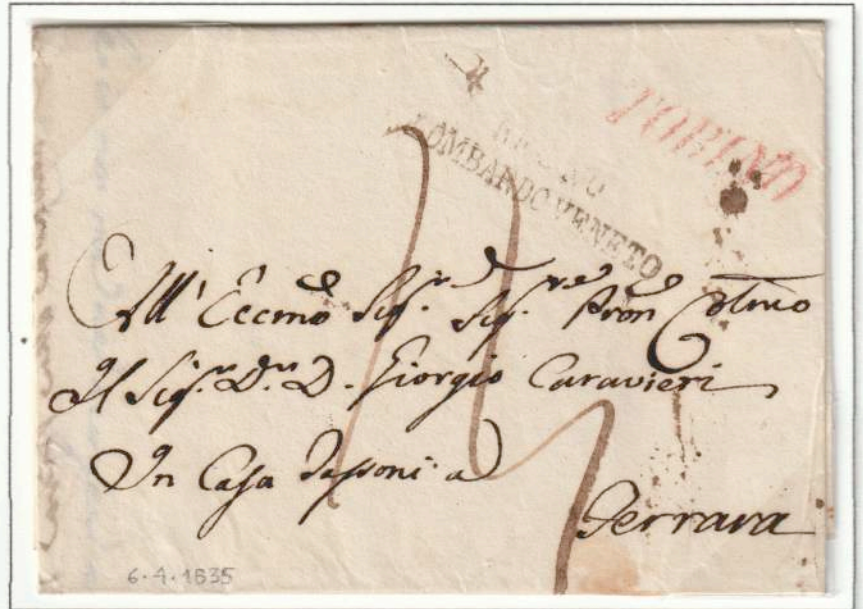 TORINO
REGNO
LOMBARDO VENETO
All' Eccmo Sigr. Sigr. Pron Colmo
Il Sigr. Dn. D. Giorgio Caravieri
In Casa Tassoni a
Ferrara
6.4.1835